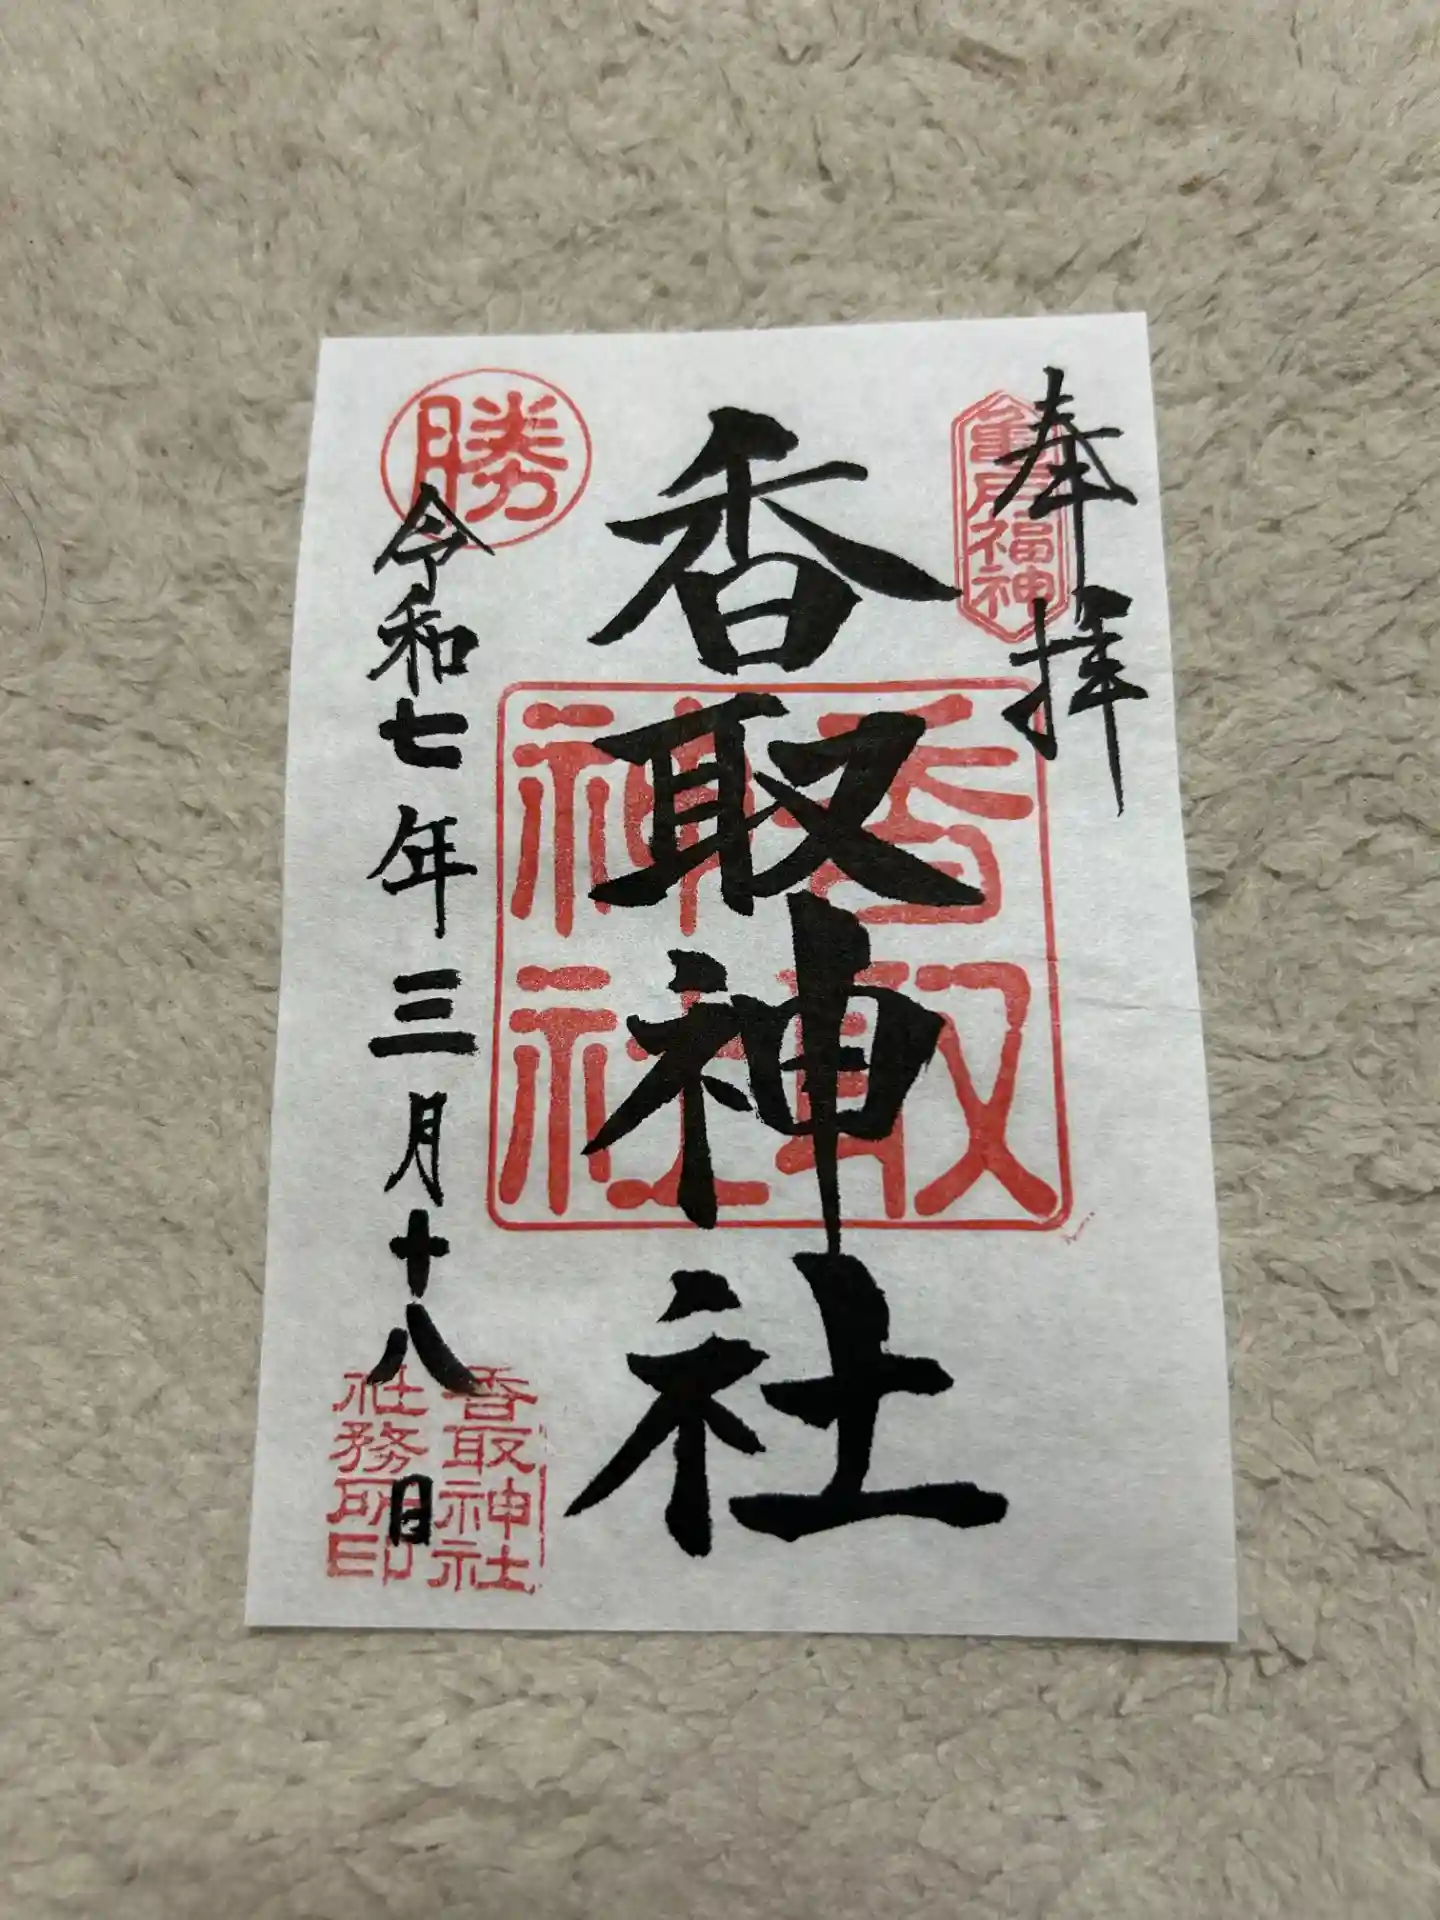 奉拝
亀戸福神
香取神社
香取
神社
勝
令和七年三月十八日
香取神社
社務所印